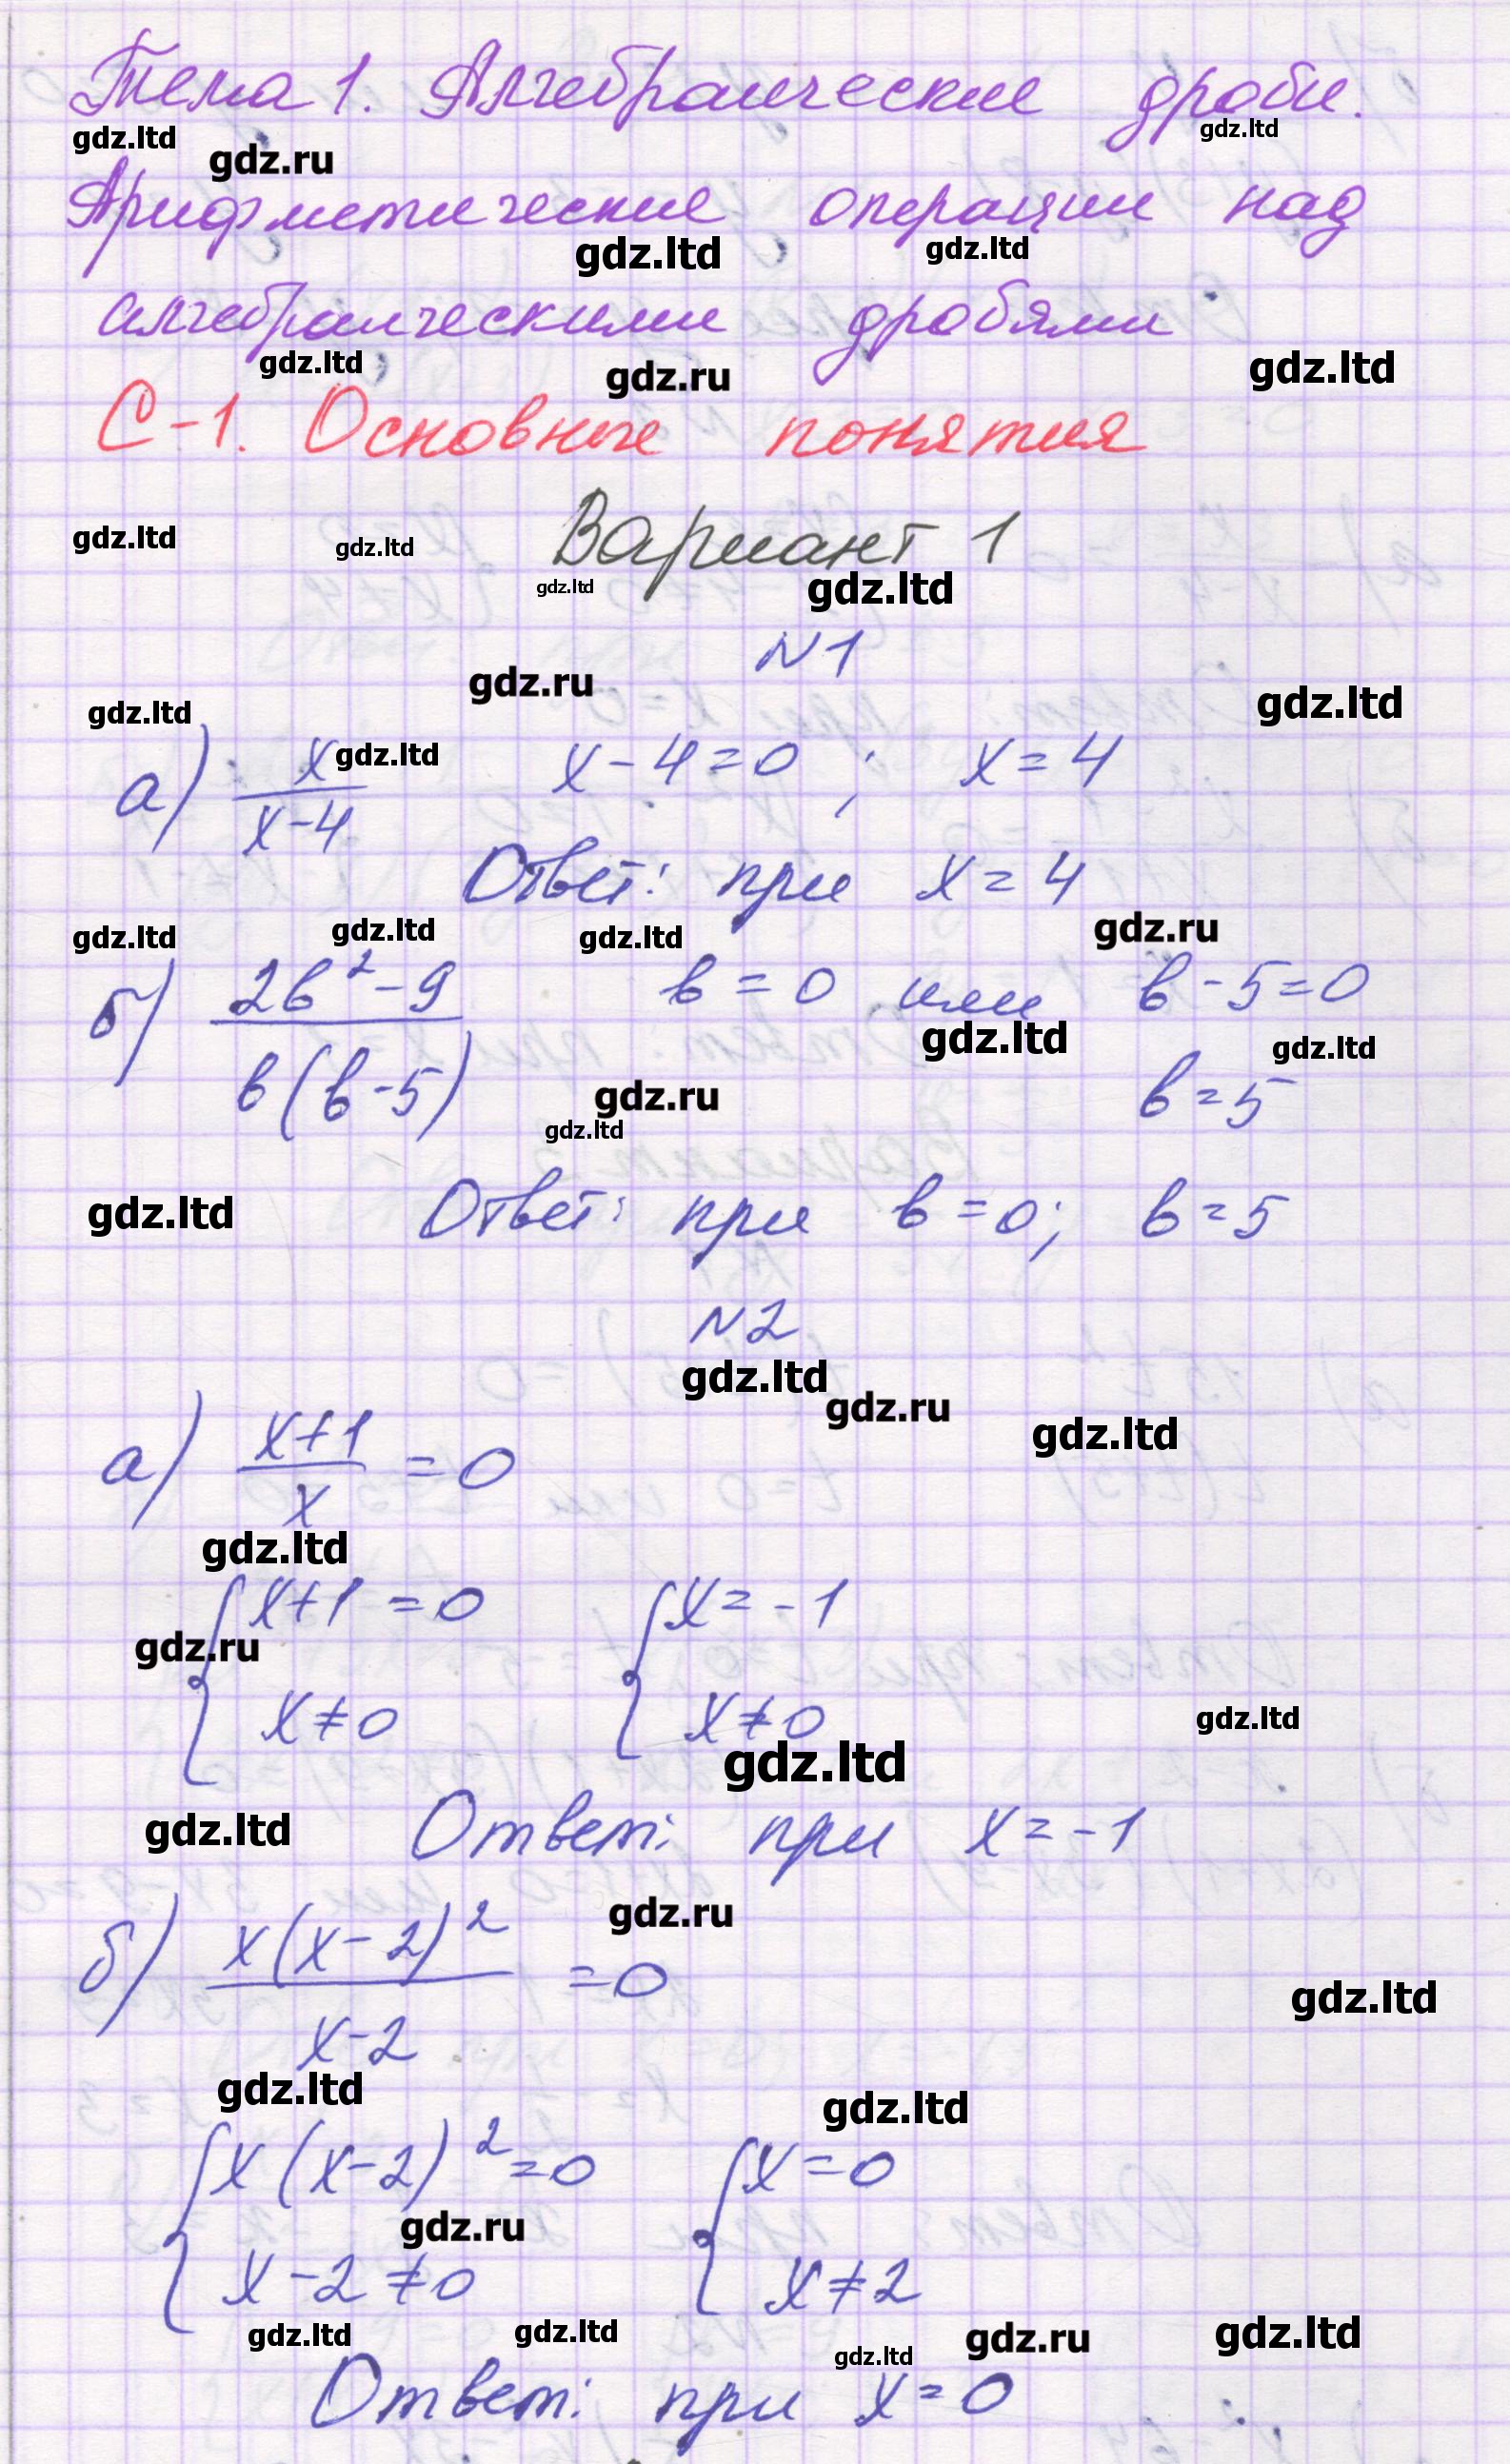 Тема 1. Алгебраические дроби.
gdz.ltd gdz.ru gdz.ltd
Арифметические операции над
gdz.ltd gdz.ltd
алгебраическими дробями
gdz.ltd gdz.ru gdz.ltd
С-1. Основные понятия
Вариант 1
gdz.ltd gdz.ltd gdz.ltd gdz.ltd
N1
gdz.ltd gdz.ru gdz.ltd
а) x/(x-4) x-4=0; x=4
gdz.ltd
Ответ: при x=4
gdz.ltd gdz.ltd gdz.ltd gdz.ru
б) (2b²-9)/(b(b-5)) b=0 или b-5=0
gdz.ltd gdz.ltd
b=5
gdz.ru gdz.ltd
gdz.ltd
Ответ: при b=0; b=5
N2
gdz.ltd gdz.ru gdz.ltd
а) (x+1)/x =0
gdz.ltd
{x+1=0 {x=-1
gdz.ru
x≠0 x≠0
gdz.ltd gdz.ltd
gdz.ltd
Ответ: при x=-1
gdz.ru
б) (x(x-2)²)/(x-2) =0
gdz.ltd
gdz.ltd gdz.ltd
{x(x-2)²=0 {x=0
gdz.ru
x-2≠0 x≠2
gdz.ltd gdz.ltd gdz.ltd gdz.ru gdz.ltd
Ответ: при x=0